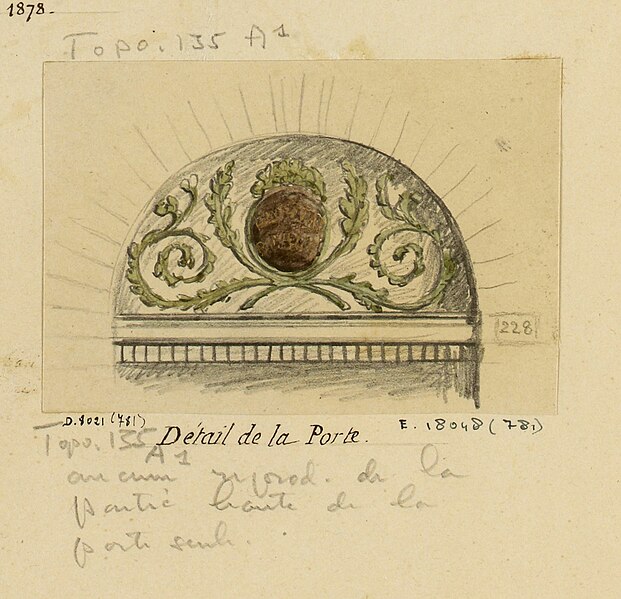 1878.
Topo. 135 A1
228
D.8021 (781)
E. 18048 (781)
Détail de la Porte.
Topo. 135
A1
aucun reprod. de la
partie haute de la
porte seule.